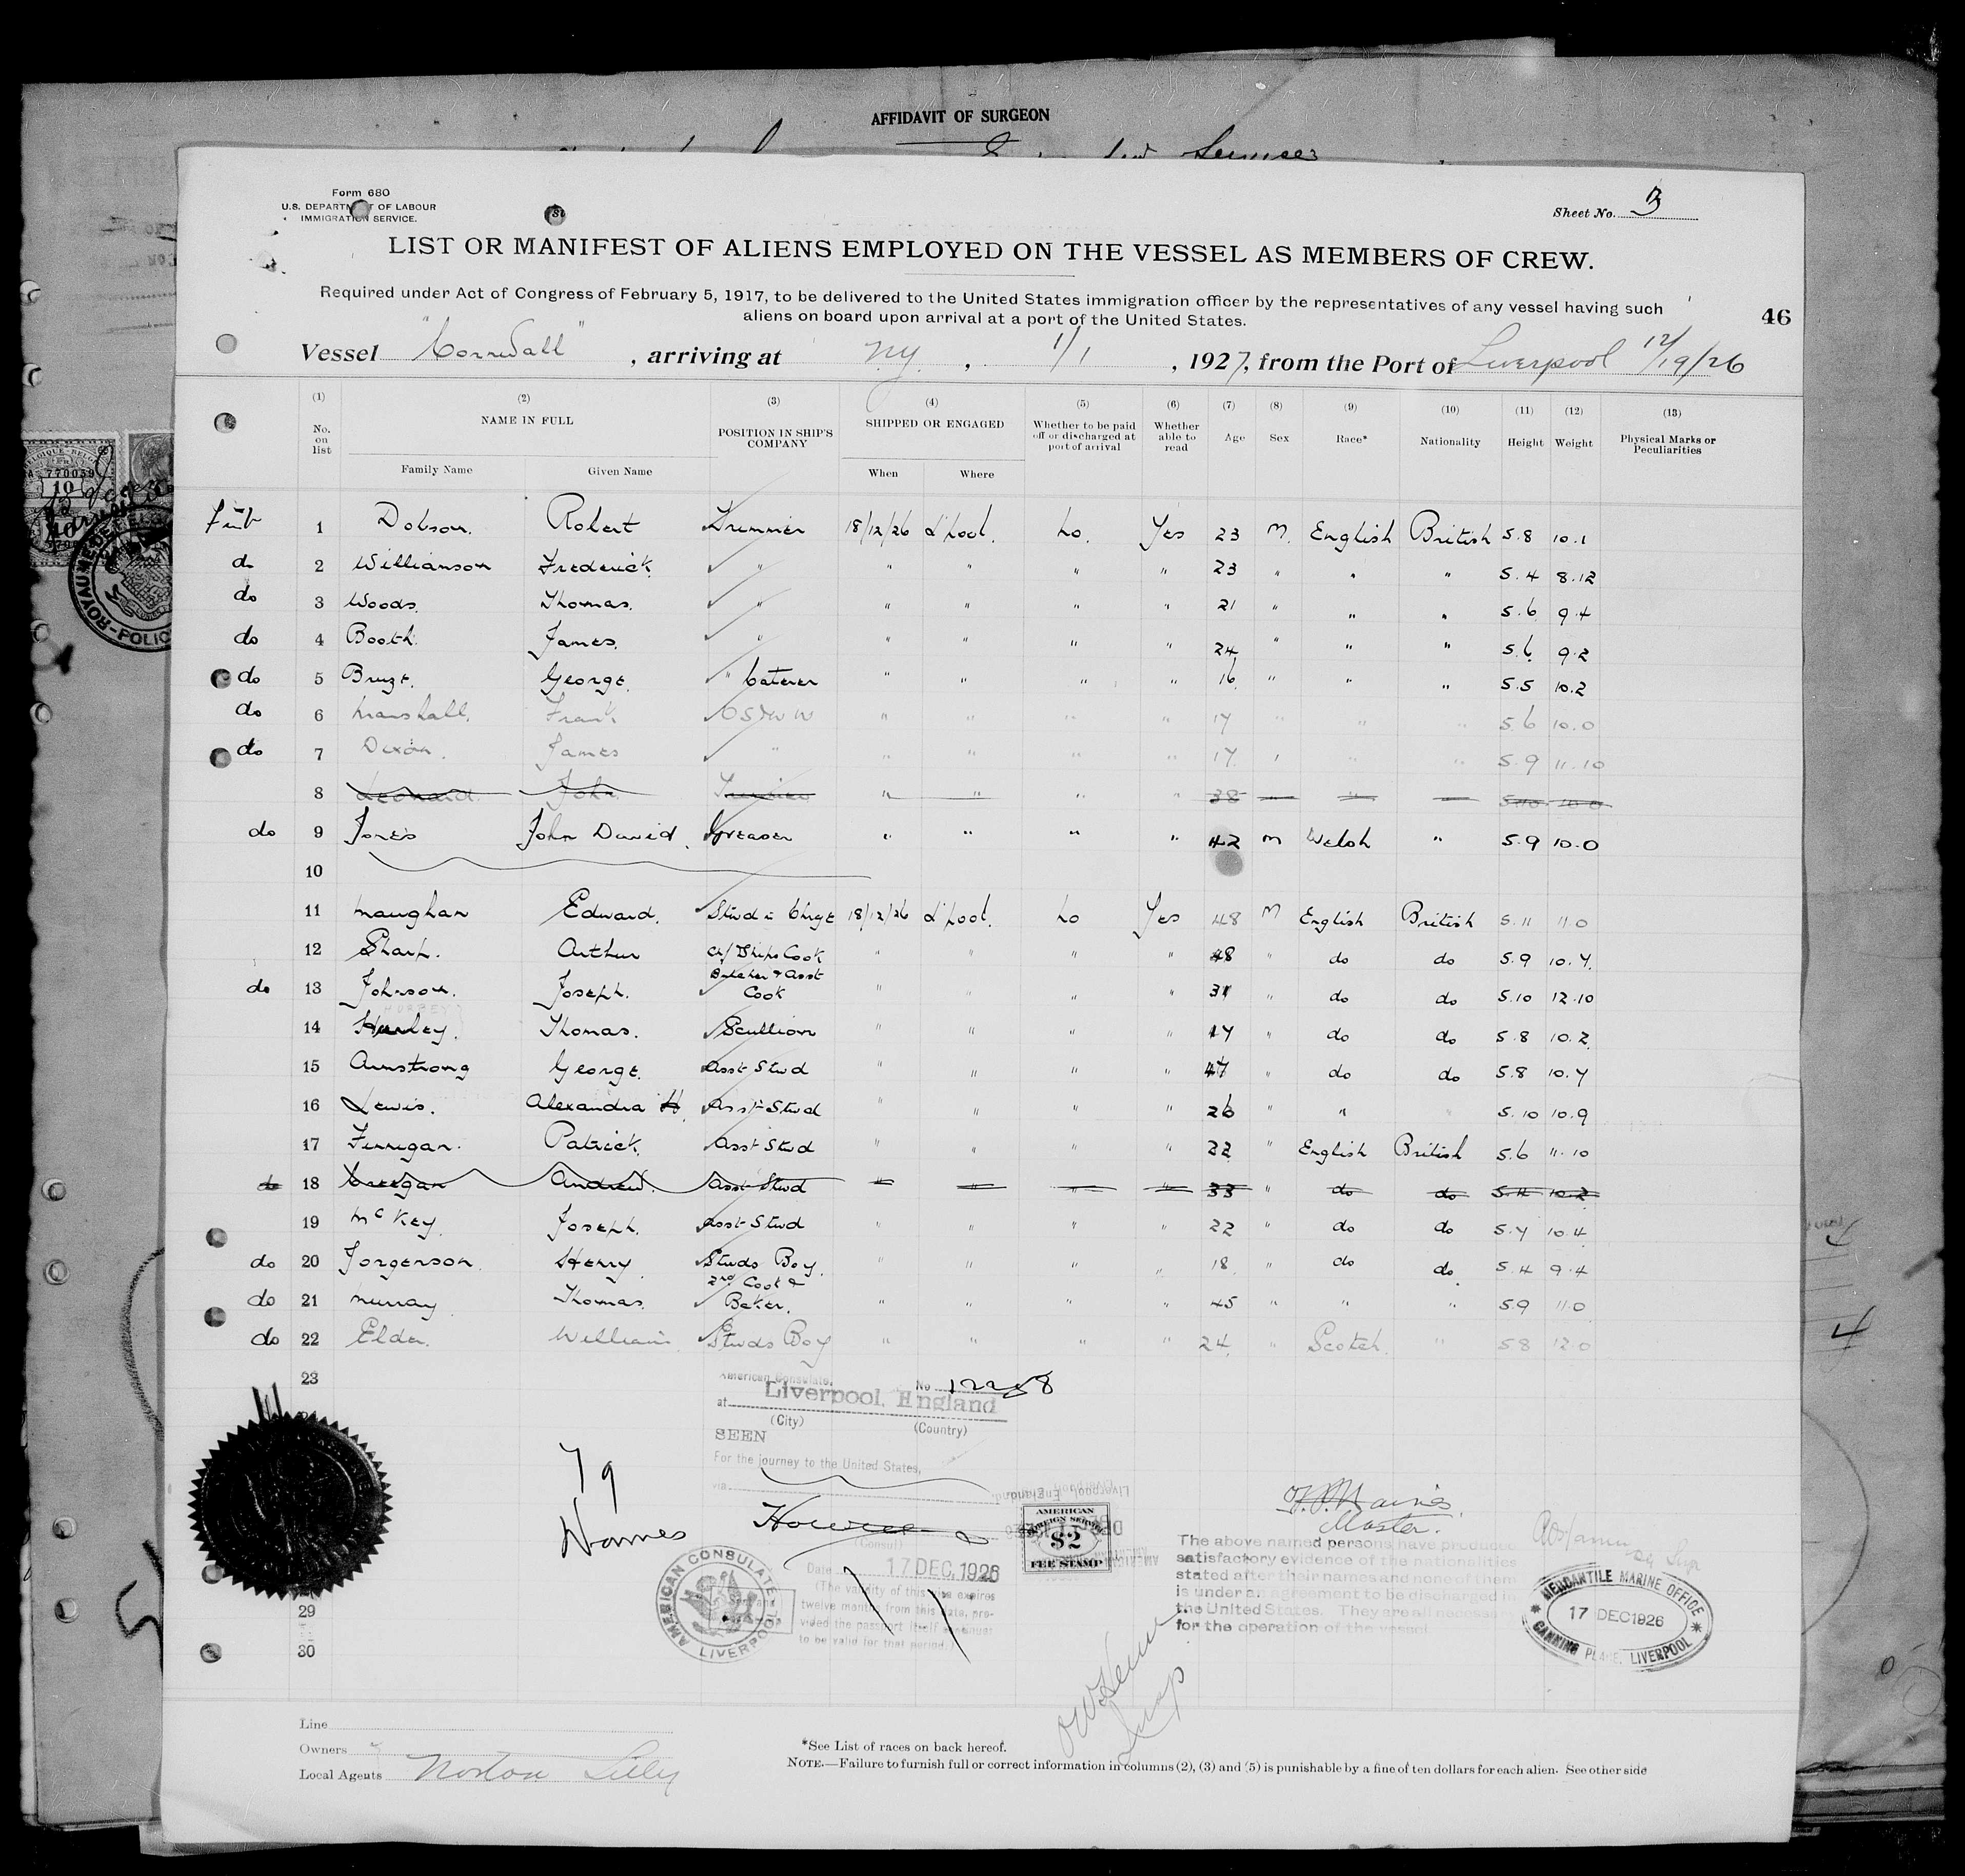 AFFIDAVIT OF SURGEON
Form 680
U.S. DEPARTMENT OF LABOUR
IMMIGRATION SERVICE.
Sheet No. 3
LIST OR MANIFEST OF ALIENS EMPLOYED ON THE VESSEL AS MEMBERS OF CREW.
Required under Act of Congress of February 5, 1917, to be delivered to the United States immigration officer by the representatives of any vessel having such
aliens on board upon arrival at a port of the United States.
46
Vessel "Cornwall", arriving at N.Y., 1/1, 1927, from the Port of Liverpool 12/19/26
(1) (2) (3) (4) (5) (6) (7) (8) (9) (10) (11) (12) (13)
No. on list NAME IN FULL POSITION IN SHIP'S COMPANY SHIPPED OR ENGAGED Whether to be paid off or discharged at port of arrival Whether able to read Age Sex Race* Nationality Height Weight Physical Marks or Peculiarities
Family Name Given Name When Where
1 Dobson. Robert Trimmer 18/12/26 L'pool. No. Yes 23 M. English British 5.8 10.1
do 2 Williamson Frederick. " " " " " 23 " " " 5.4 8.12
do 3 Woods. Thomas. " " " " " 21 " " " 5.6 9.4
do 4 Booth. James. " " " " " 24 " " " 5.6 9.2
do 5 George. " Caterer " " " " 16 " " " 5.5 10.2
do 6 Marshall. Frank " " " " 17 " " " 5.6 10.0
do 7 Dixon. James " " " " " 17. " " " 5.9 11.10
8 Leonard. John Trimmer " " " " 38 " " " 5.10 10.0
do 9 Jones John David. Greaser " " " " 42 M Welsh " 5.9 10.0
10
11 Maughan Edward. Stwd i/c Chrge 18/12/26 L'pool. No Yes 48 M English British 5.11 11.0
12 Sharp. Arthur Ch/ Ships Cook " " " " 48 " do do 5.9 10.7
do 13 Johnson. Joseph. Butcher & Asst Cook " " " " 31 " do do 5.10 12.10
14 Thomas. Scullion " " " " 17 " do do 5.8 10.2
15 Armstrong George. Asst Stwd " " " " 47 " do do 5.8 10.7
16 Lewis. Alexandra H. Asst Stwd " " " " 26 " " 5.10 10.9
17 Finnigan. Patrick. Asst Stwd " " " " 22 " English British 5.6 11.10
do 18 Creegan Andrew. Asst Stwd " " " " 33 " do do 5.4 10.2
19 McKey Joseph. Asst Stwd " " " " 22 " do do 5.7 10.4
do 20 Jorgenson. Henry Stwds Boy. " " " " 18. " do do 5.4 9.4
do 21 Murray Thomas. 2nd Cook & Baker. " " " " 45 " " " 5.9 11.0
do 22 Elder. William. Stwds Boy " " " " 24. " Scotch. " 5.8 12.0
23
American Consulate, No.
at Liverpool, England
(City) (Country)
SEEN
For the journey to the United States,
via
(Consul)
Date 17 DEC. 1926
(The validity of this visa expires
twelve months from this date, pro-
vided the passport itself continues
to be valid for that period.)
79
Names
AMERICAN CONSULATE
LIVERPOOL
AMERICAN
FOREIGN SERVICE
$2
FEE STAMP
Master.
The above named persons have produced
satisfactory evidence of the nationalities
stated after their names and none of them
is under an agreement to be discharged in
the United States. They are all necessary
for the operation of the vessel
MERCANTILE MARINE OFFICE
17 DEC 1926
CANNING PLACE, LIVERPOOL
29
30
Line
Owners
Local Agents Norton Lilly
*See List of races on back hereof.
NOTE.—Failure to furnish full or correct information in columns (2), (3) and (5) is punishable by a fine of ten dollars for each alien. See other side